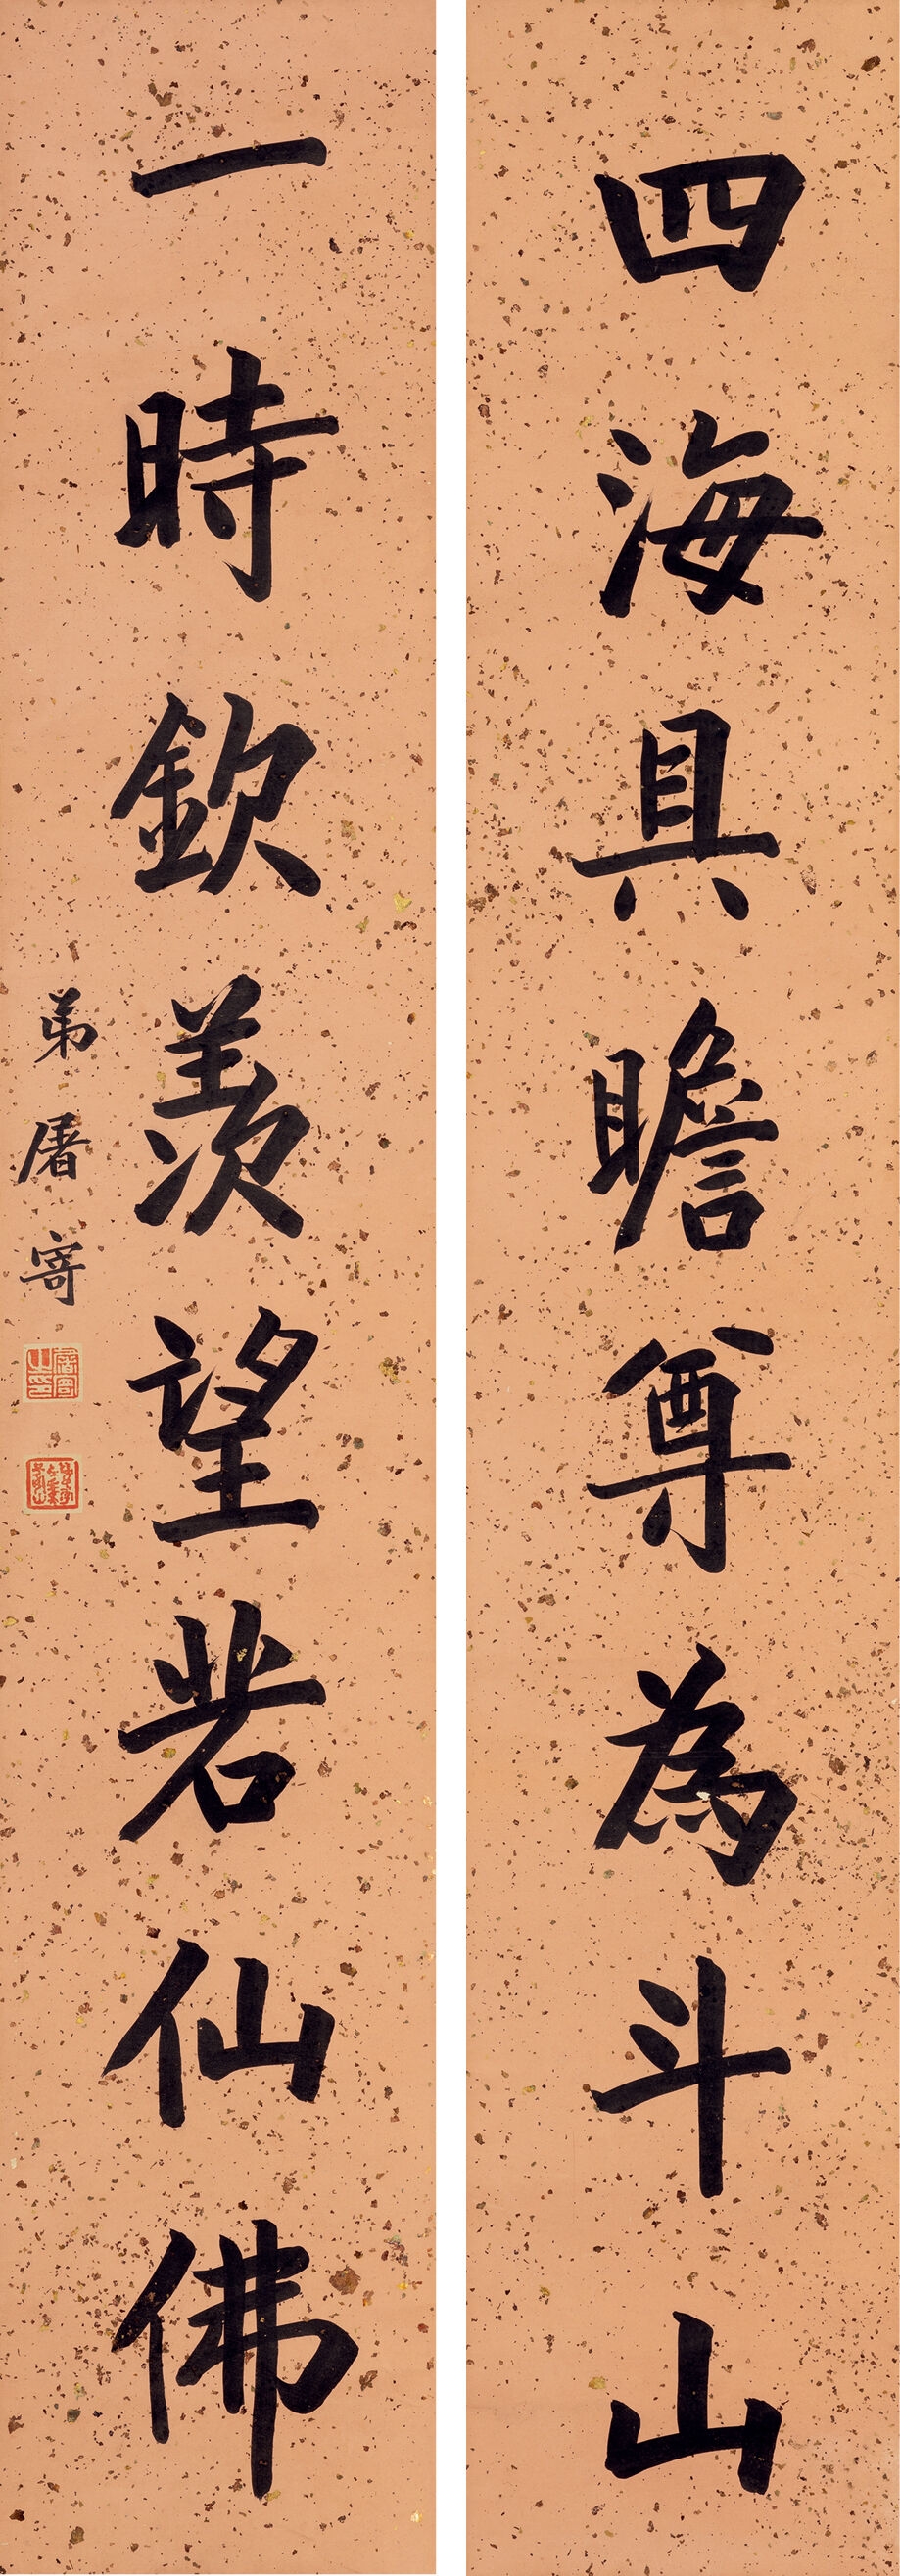 四海具瞻尊為斗山
一時欽羨望若仙佛
弟屠寄
屠寄之印